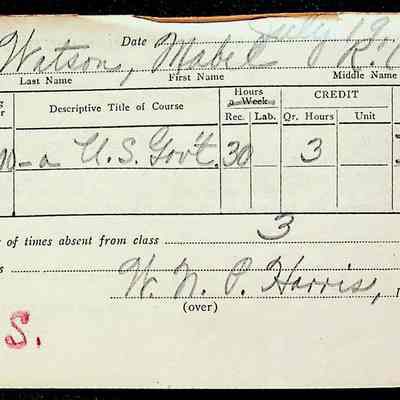 Date July 19
Watson, Mabel R.
Last Name First Name Middle Name
Hours
a Week CREDIT
Descriptive Title of Course Rec. Lab. Qr. Hours Unit
0-a U.S. Gov't. 30 3
of times absent from class 3
W. N. P. Harris,
(over)
S.